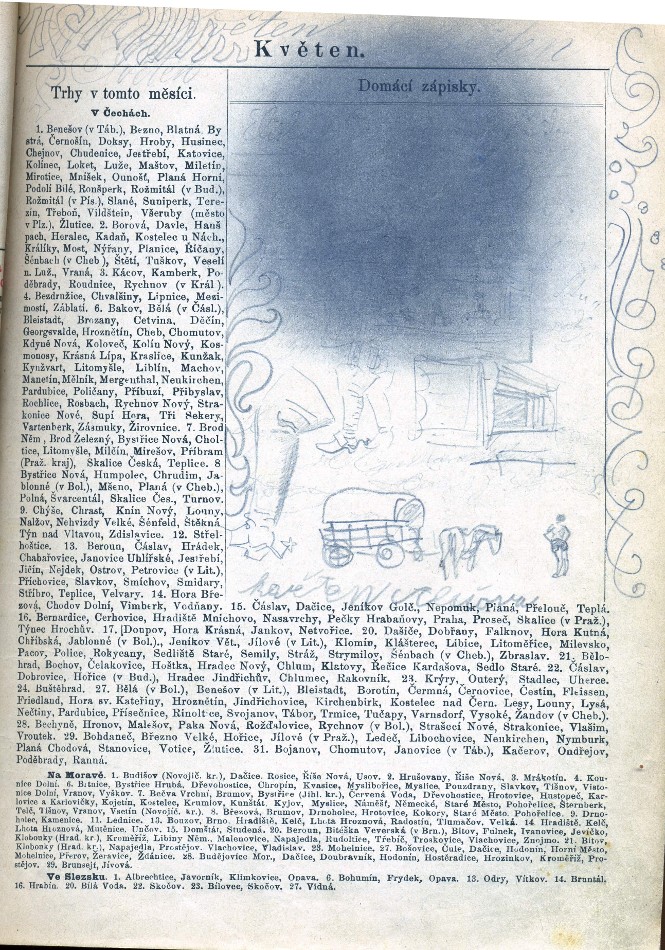 Květen.
Trhy v tomto měsíci.
V Čechách.
1. Benešov (v Táb.), Bezno, Blatná, By
strá, Černošín, Doksy, Hroby, Husinec,
Chejnov, Chudenice, Jestřebí, Katovice,
Kolinec, Loket, Luže, Maštov, Miletín,
Mirotice, Mníšek, Ounošť, Planá Horní,
Podolí Bílé, Ronšperk, Rožmitál (v Bud.),
Rožmitál (v Pís.), Slané, Suniperk, Tere-
zín, Třeboň, Vildštein, Všeruby (město
v Plz.), Žlutice. 2. Borová, Davle, Hanš
pach, Heralec, Kadaň, Kostelec u Nách.,
Králíky, Most, Nýřany, Planice, Říčany,
Šénbach (v Cheb), Štětí, Tuškov, Veselí
n. Luž., Vraná, 3. Kácov, Kamberk, Po-
děbrady, Roudnice, Rychnov (v Král).
4. Bezdružice, Chvalšiny, Lipnice, Mezi-
mostí, Záblatí. 6. Bakov, Bělá (v Čásl.),
Bleistadt, Brozany, Cetvina, Děčín,
Georgsvalde, Hroznětín, Cheb, Chomutov,
Kdyně Nová, Koloveč, Kolín Nový, Kos-
monosy, Krásná Lípa, Kraslice, Kunžak,
Kynžvart, Litomyšle, Liblín, Machov,
Manetín, Mělník, Mergenthal, Neukirchen,
Pardubice, Poličany, Příbuzí, Přibyslav,
Rochlice, Rosbach, Rychnov Nový, Stra-
konice Nové, Supí Hora, Tři Sekery,
Vartenberk, Zásmuky, Žirovnice. 7. Brod
Něm., Brod Železný, Bystřice Nová, Chol-
tice, Litomyšle, Milčín, Mirešov, Příbram
(Praž. kraj), Skalice Česká, Teplice. 8
Bystřice Nová, Humpolec, Chrudim, Ja-
blonné (v Bol.), Mšeno, Planá (v Cheb.),
Polná, Švarcentál, Skalice Čes., Turnov.
9. Chýše, Chrast, Knín Nový, Louny,
Nalžov, Nehvizdy Velké, Šénfeld, Štěkná
Týn nad Vltavou, Zdislavice. 12. Střel-
hoštice. 13. Beroun, Čáslav, Hrádek,
Chabařovice, Janovice Uhlířské, Jestřebí,
Jičín, Nejdek, Ostrov, Petrovice (v Lit.),
Přichovice, Slavkov, Smíchov, Smidary,
Stříbro, Teplice, Velvary. 14. Hora Bře-
zová, Chodov Dolní, Vimberk, Vodňany. 15. Čáslav, Dačice, Jeníkov Golč., Nepomuk, Planá, Přelouč, Teplá.
16. Bernardice, Cerhovice, Hradiště Mnichovo, Nasavrchy, Pečky Hrabaňovy, Praha, Proseč, Skalice (v Praž.),
Týnec Hrochův. 17. Doupov, Hora Krásná, Jankov, Netvořice. 20. Dašiče, Dobřany, Falknov, Hora Kutná,
Chřibská, Jablonné (v Bol.)., Jeníkov Vět., Jílové (v Lit.), Klomín, Klášterec, Libice, Litoměřice, Milevsko,
Pacov, Police, Rokycany, Sedliště Staré, Semily, Stráž, Strymilov, Šénbach (v Cheb.), Zbraslav. 21. Bělo-
hrad, Bochov, Čelakovice, Hoštka, Hradec Nový, Chlum, Klatovy, Řečice Kardašova, Sedlo Staré. 22. Čáslav,
Dobrovice, Hořice (v Bud.), Hradec Jindřichův, Chlumec, Rakovník. 23. Krýry, Outerý, Stadlec, Uherce.
24. Buštěhrad. 27. Bělá (v Bol.), Benešov (v Lit.), Bleistadt, Borotín, Čermná, Černovice, Čestín, Fleissen,
Friedland, Hora sv. Kateřiny, Hroznětín, Jindřichovice, Kirchenbirk, Kostelec nad Čern. Lesy, Louny, Lysá,
Nečtiny, Pardubice, Přísečnice, Rinoltice, Svojanov, Tábor, Trmice, Tučapy, Varnsdorf, Vysoké, Žandov (v Cheb.).
28. Bechyně, Hronov, Malešov, Paka Nová, Rožďalovice, Rychnov (v Bol.), Strašecí Nové, Strakonice, Vlašim,
Vroutek. 29. Bohdaneč, Březno Velké, Hořice, Jílové (v Praž.), Ledeč, Libochovice, Neukirchen, Nymburk,
Planá Chodová, Stanovice, Votice, Žlutice. 31. Bojanov, Chomutov, Janovice (v Táb.), Kačerov, Ondřejov,
Poděbrady, Ranná.
Na Moravě. 1. Budišov (Novojič. kr.), Dačice, Rosice, Říše Nová, Usov. 2. Hrušovany, Říše Nová. 3. Mrákotín. 4. Kou-
nice Dolní. 6. Bítnice, Bystřice Hrubá, Dřevohostice, Chropín, Kvasice, Myslibořice, Myslice, Pouzdrany, Slavkov, Tišnov, Visto-
nice Dolní, Vranov, Vyškov. 7. Bečva Vrchní, Brumov, Bystřice (Jihl. kr.), Červená Voda, Dřevohostice, Hrotovice, Hustopeč, Kar-
lovice a Karlovičky, Kojetín, Kostelec, Krumlov, Kunštát, Kyjov, Myslice, Náměšť, Německé, Staré Město, Pohořelice, Šternberk,
Telč, Tišnov, Vranov, Vsetín (Novojič. kr.). 8. Březová, Brumov, Drnholec, Hrotovice, Kokory, Staré Město, Pohořelice. 9. Drno-
holec, Kamenice. 11. Lednice. 13. Bouzov, Brno, Hradiště, Kelč, Lhota Hroznová, Radostín, Tlumačov, Velká. 14. Hradiště, Kelč,
Lhota Hroznová, Mutěnice, Unčov. 15. Domštát, Studená. 20. Beroun, Bitéška Veverská (v Brn.), Bítov, Fulnek, Ivanovice, Jevíčko,
Klobouky (Hrad. kr.), Kroměříž, Libiny Něm., Malenovice, Napajedla, Rudoltice, Třebíč, Troskovice, Vlachovice, Znojmo. 21. Bítov,
Klobouky (Hrad. kr.), Napajedla, Prostějov, Vlachovice, Vladislav. 23. Mohelnice. 27. Bošovice, Čule, Dačice, Hodonín, Horní Město,
Mohelnice, Přerov, Žeravice, Ždánice. 28. Budějovice Mor., Dačice, Doubravník, Hodonín, Hostěradice, Hrozinkov, Kroměříž, Pro-
stějov. 29. Brunsejf, Jívová.
Ve Slezsku. 1. Albrechtice, Javorník, Klimkovice, Opava. 6. Bohumín, Frydek, Opava. 13. Odry, Vítkov. 14. Bruntál,
16. Hrabín. 20. Bílá Voda. 22. Skočov. 23. Bílovec, Skočov. 27. Vidná.
Domácí zápisky.